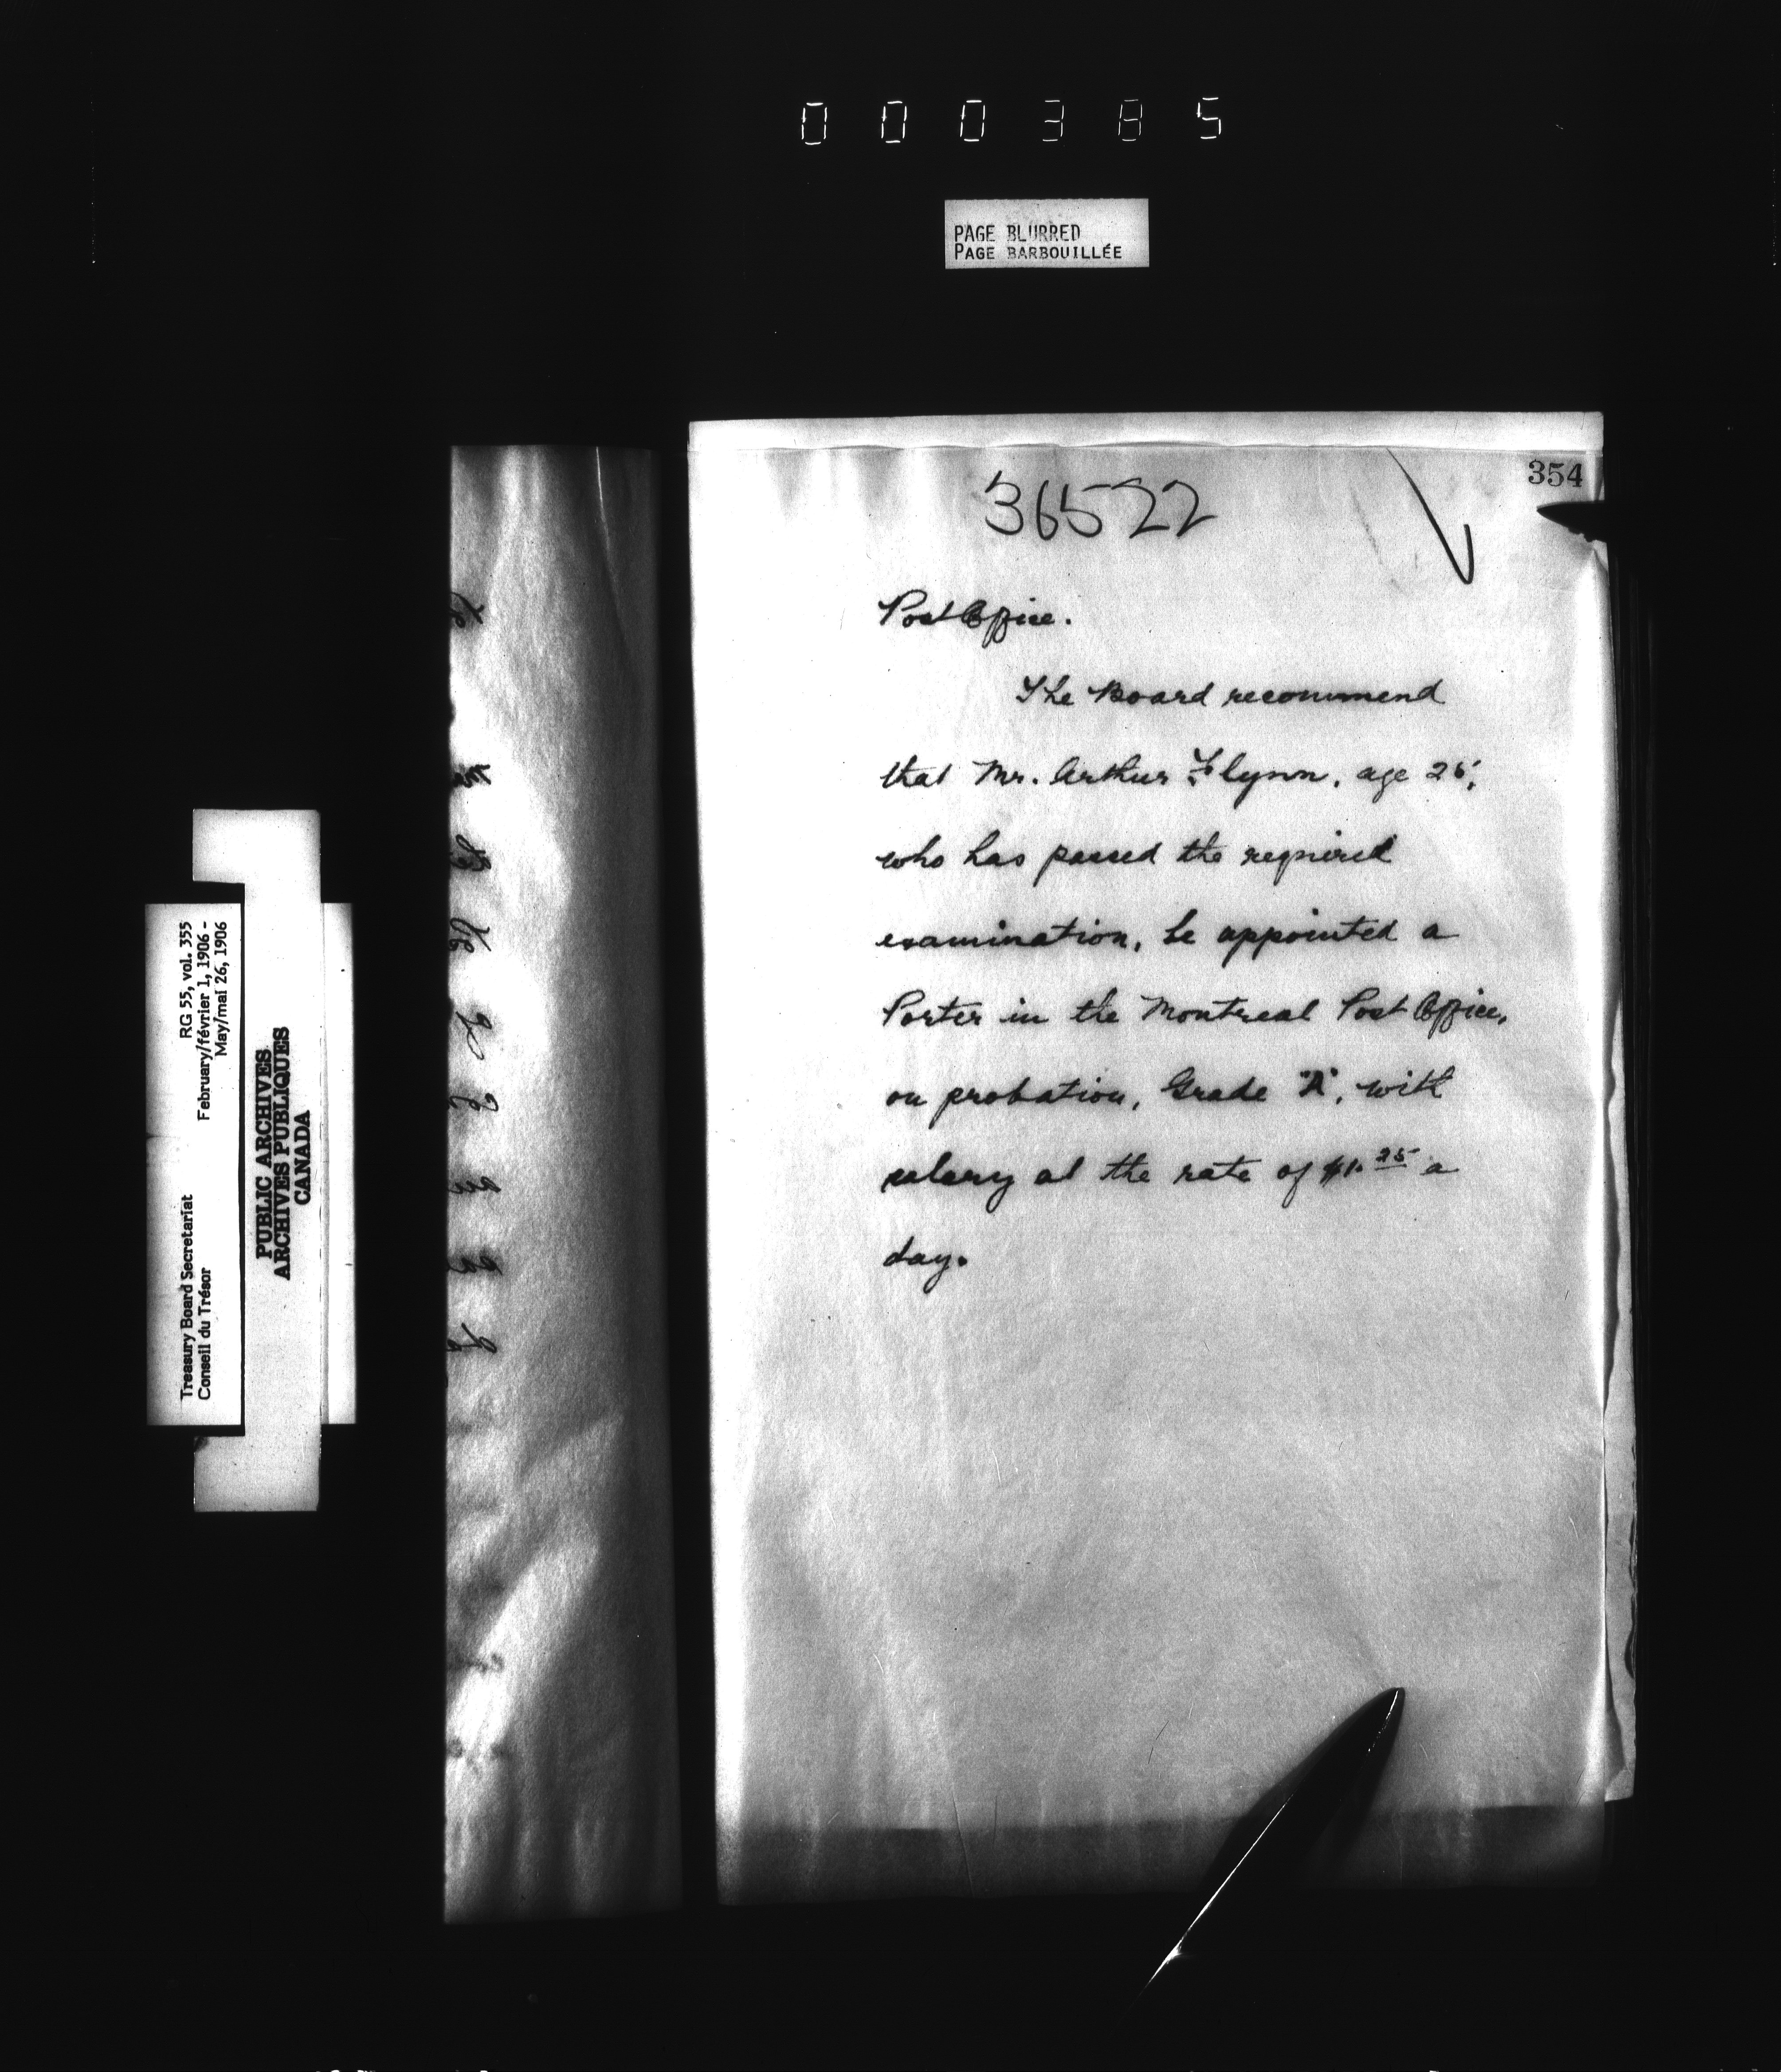 000385
PAGE BLURRED
PAGE BARBOUILLÉE
354
36522
Post Office.
The Board recommend
that Mr. Arthur Flynn, age 25,
who has passed the required
examination, be appointed a
Porter in the Montreal Post Office,
on probation, Grade "A", with
salary at the rate of $1.25 a
day.
Treasury Board Secretariat
Conseil du Trésor
RG 55, vol. 355
February/février 1, 1906 -
May/mai 26, 1906
PUBLIC ARCHIVES
ARCHIVES PUBLIQUES
CANADA